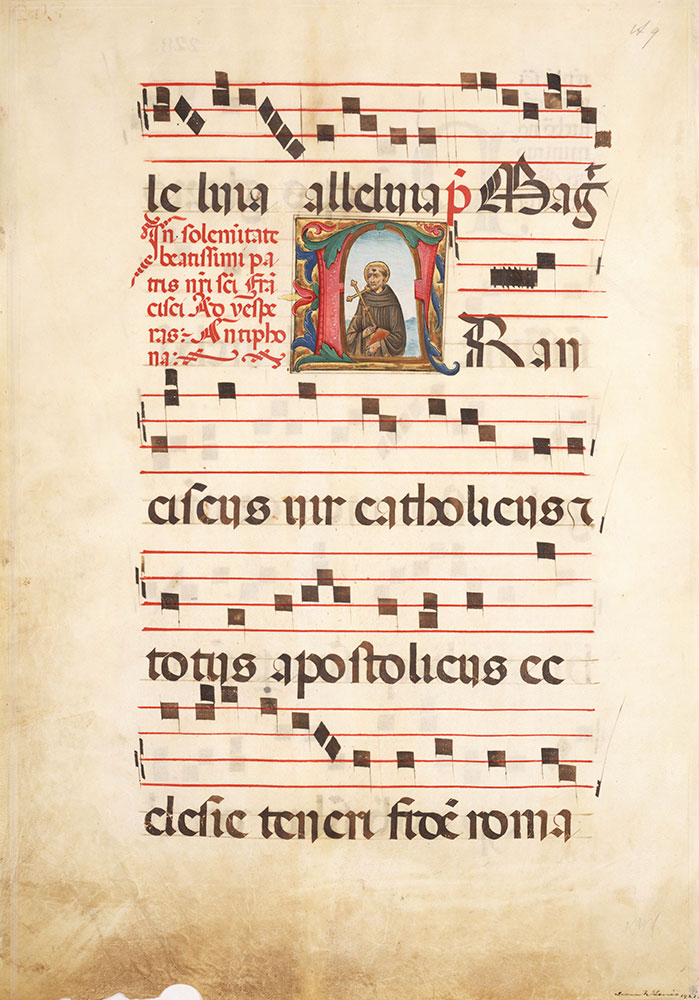 le luia alleluia p̃ Mag̃
In solemnitate
beatissimi pa
tris nr̃i sc̃i Frã
cisci Ad vespe
ras Antipho
na
Ran
ciscus uir catholicus ⁊
totus apostolicus ec
clesie teneri fidẽ roma